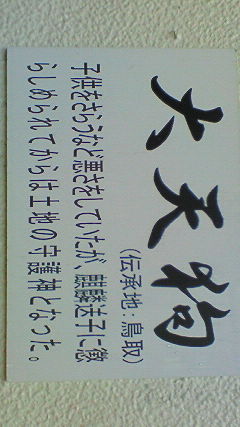 大天狗
(伝承地:鳥取)
子供をさらうなど悪さをしていたが、麒麟送子に懲
らしめられてからは土地の守護神となった。